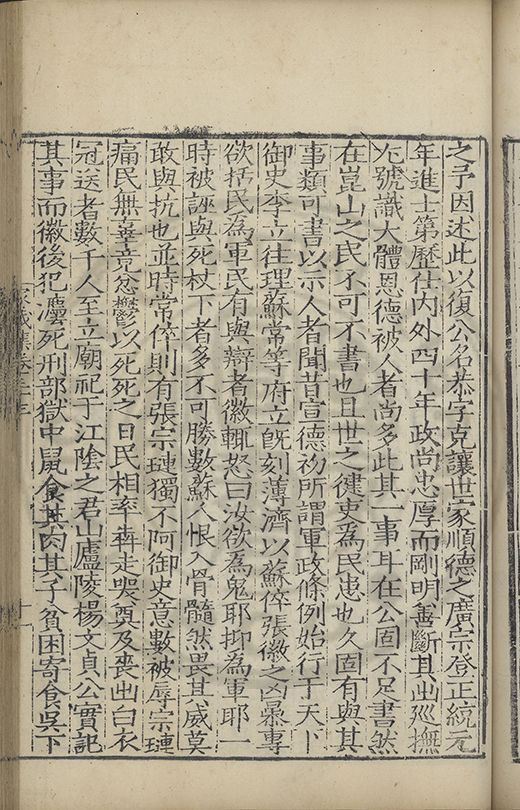 之予因述此以復公名恭字克讓世家順德之廣宗登正統元
年進士第歷仕内外四十年政尚忠厚而剛明善斷其出巡撫
尤號識大體恩德被人者尚多此其一事耳在公固不足書然
在崑山之民不可不書也且世之健吏為民患也久固有與其
事類可書以示人者聞昔宣德初所謂軍政條例始行于天下
御史李立往理蘇常等府立既刻薄濟以蘇倅張徽之凶暴專
欲括民為軍民有與辯者徽輒怒曰汝欲為鬼耶抑為軍耶一
時被誣與死杖下者多不可勝數蘇人恨入骨髓然畏其威莫
敢與抗也並時常倅則有張宗璉獨不阿御史意數被辱宗璉
痛民無辜竟忿鬱以死死之日民相率犇走哭奠及喪出白衣
冠送者數千人至立廟祀于江陰之君山廬陵楊文貞公實記
其事而徽後犯灋死刑部獄中鼠食其肉其子貧困寄食吳下
家藏集卷三十
十一